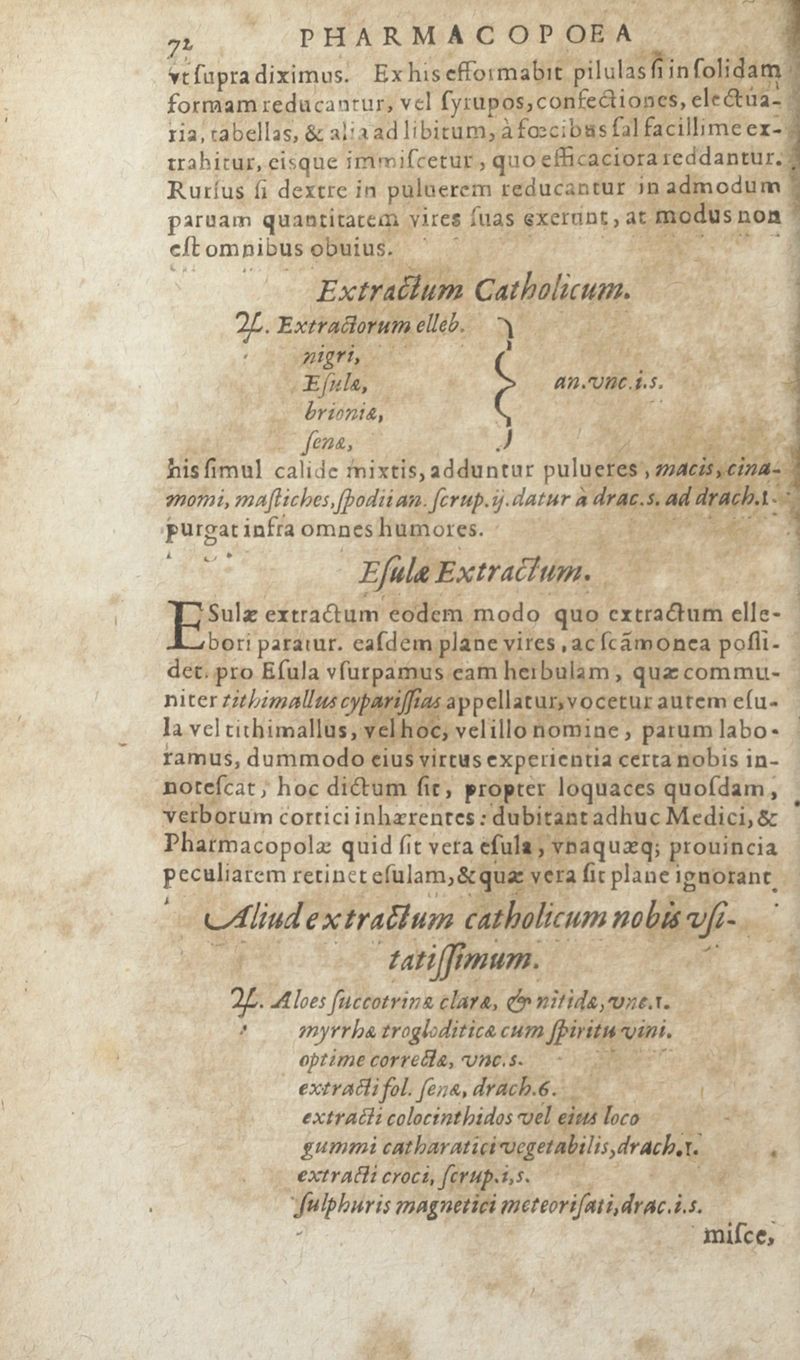 72 PHARMACOPOEA
vt ſupra diximus. Ex his efformabit pilulas ſi in ſolidam
formam reducantur, vel ſyrupos, confectiones, electua-
ria, tabellas, & alia ad libitum, à fœcibus ſal facillime ex-
trahitur, eisque immiſcetur, quo efficaciora reddantur.
Rurſus ſi dextre in puluerem reducantur in admodum
paruam quantitatem vires ſuas exerunt, at modus non
eſt omnibus obuius.
Extractum Catholicum.
℞. Extractorum elleb.
nigri,
Eſulæ,
an. vnc. i. s.
brioniæ,
ſenæ,
his ſimul calide mixtis, adduntur pulueres, macis, cina-
momi, maſtiches, ſpodii an. ſcrup. ij. datur à drac. s. ad drach. 1.
purgat infra omnes humores.
Eſulæ Extractum.
ESulæ extractum eodem modo quo extractum elle-
bori paratur. eaſdem plane vires, ac ſcāmonea poſſi-
det. pro Eſula vſurpamus eam herbulam, quæ commu-
niter tithimallus cypariſſias appellatur, vocetur autem eſu-
la vel tithimallus, vel hoc, vel illo nomine, parum labo-
ramus, dummodo eius virtus experientia certa nobis in-
noteſcat, hoc dictum ſit, propter loquaces quoſdam,
verborum cortici inhærentes: dubitant adhuc Medici, &
Pharmacopolæ quid ſit vera eſula, vnaquæq; prouincia
peculiarem retinet eſulam, & quæ vera ſit plane ignorant
Aliud extractum catholicum nobis vſi-
tatiſſimum.
℞. Aloes ſuccotrinæ claræ, & nitidæ, vnc. 1.
myrrhæ trogloditicæ cum ſpiritu vini.
optime correctæ, vnc. s.
extracti fol. ſenæ, drach. 6.
extracti colocinthidos vel eius loco
gummi catharatici vegetabilis, drach. 1.
extracti croci, ſcrup. i, s.
ſulphuris magnetici meteoriſati, drac. i. s.
miſce,